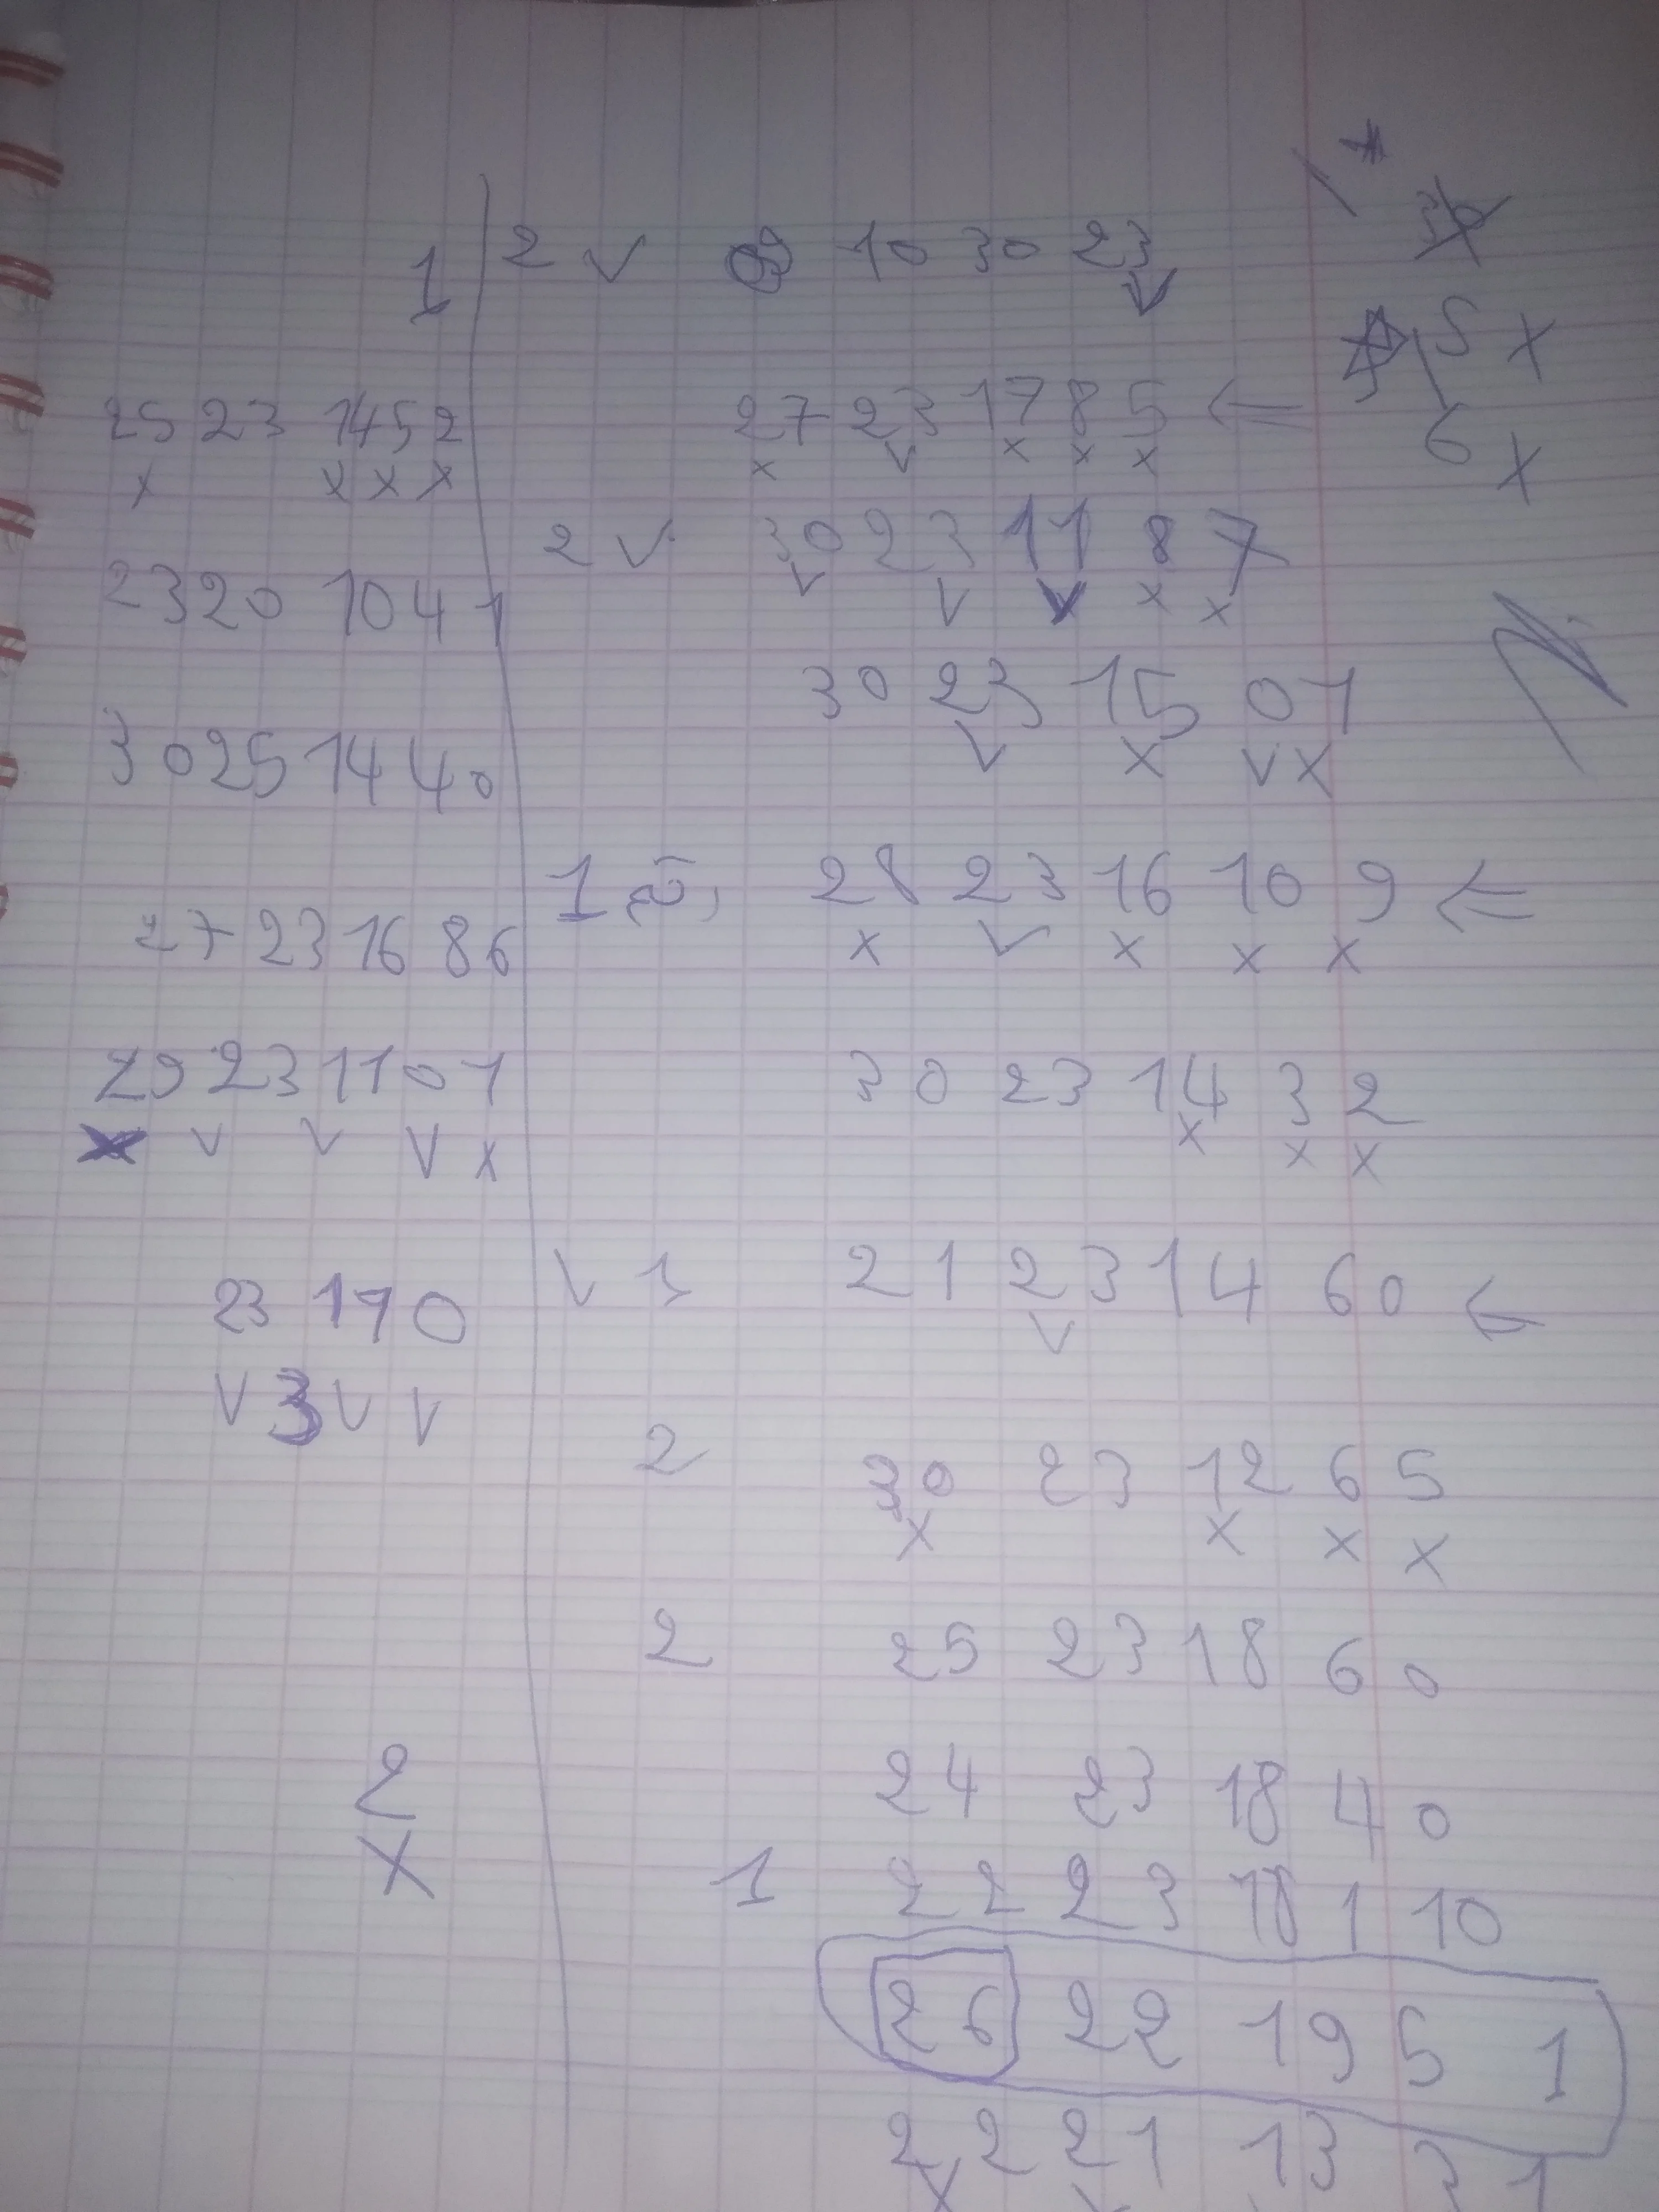 1
25 23 14 5 2
x x x x
23 20 10 4 1
30 25 14 4 0
27 23 16 8 6
29 23 11 0 1
x v v v x
23 11 0
v 3 v v
2
x
2 v 09 10 30 23
v
27 23 17 8 5
x v x x x
2 v 30 23 11 8 7
v v v x x
30 23 15 0 1
v x v x
1 28 23 16 10 9
x v x x x
30 23 14 3 2
x x x
v 1 21 23 14 6 0
v
2 30 23 12 6 5
x x x x
2 25 23 18 6 0
24 23 18 4 0
1 22 23 18 1 10
26 22 19 5 1
22 21 13 3 1
5 x
6 x